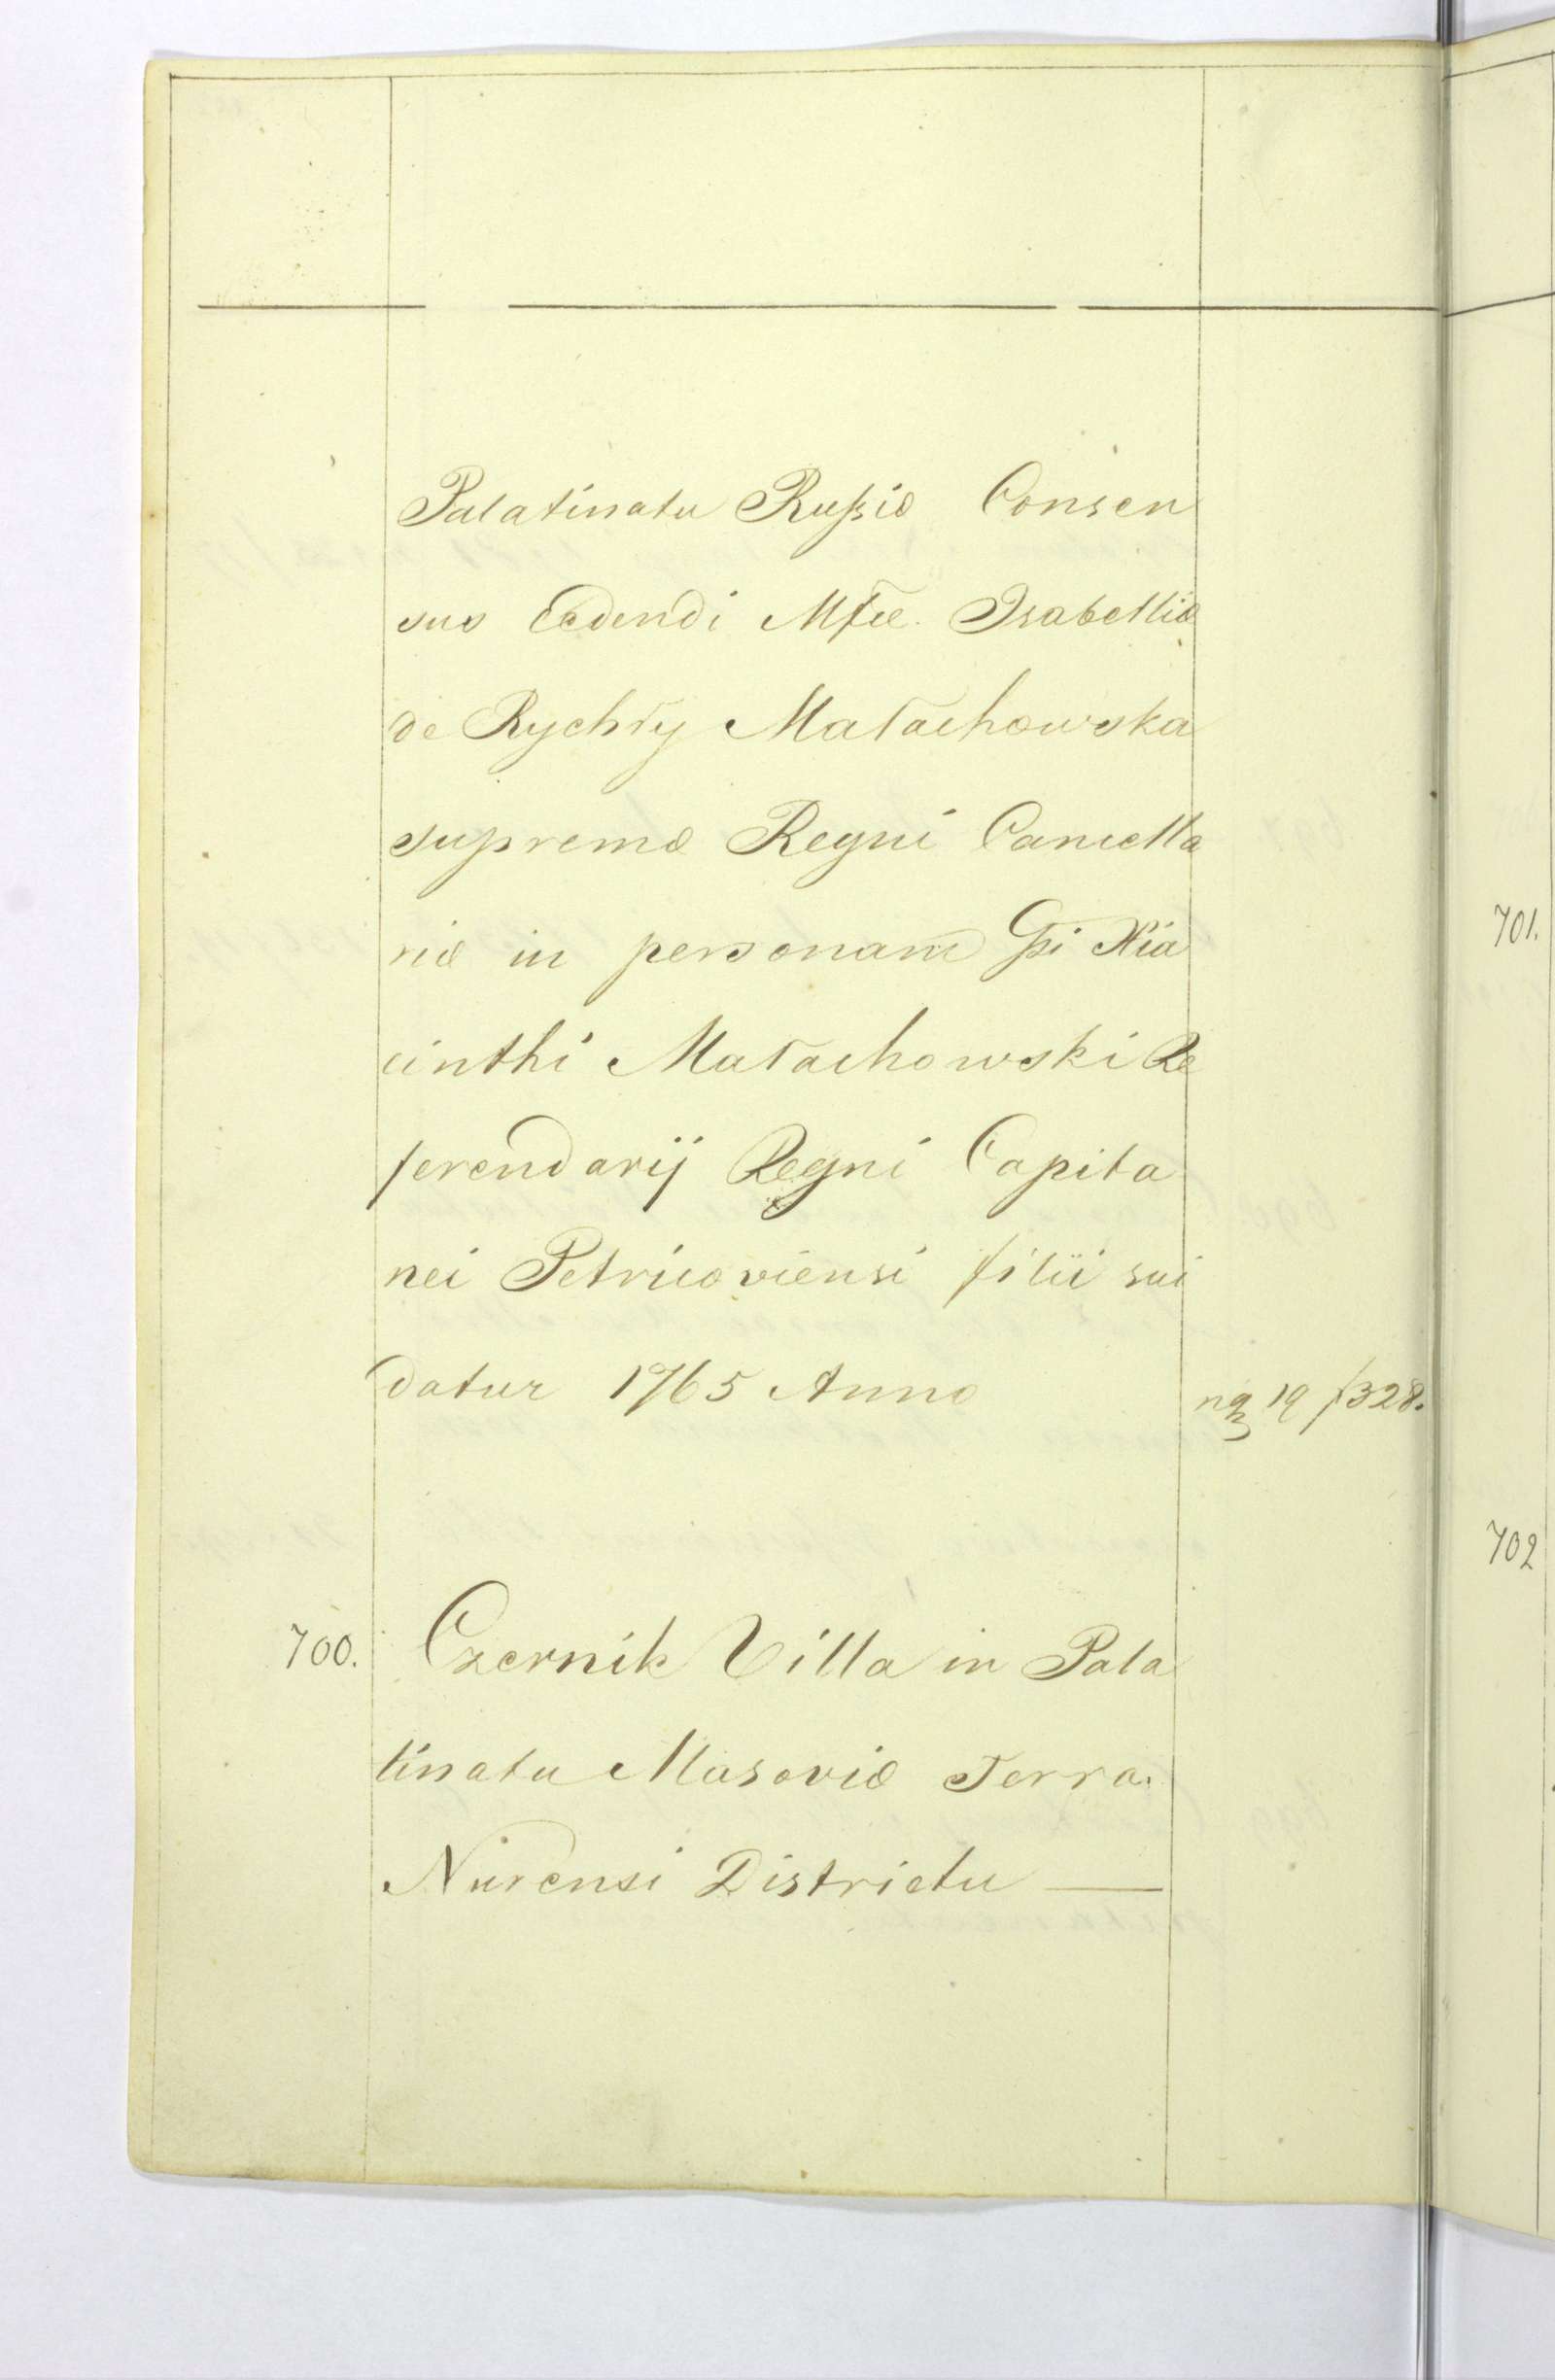 Palatinatu Rußiæ Consen
sus Cedendi Mfcæ. Isabellæ
de Rychły Małachowska
supremæ Regni Cancella
riæ in personam Gsi Hia
cinthi Małachowski Re
ferendarij Regni Capita
nei Petricoviensi filii sui
datur 1765 Anno
19 f 328.
700. Czernik Villa in Pala
tinatu Masoviæ Terra
Nurensi Districtu —
701.
702